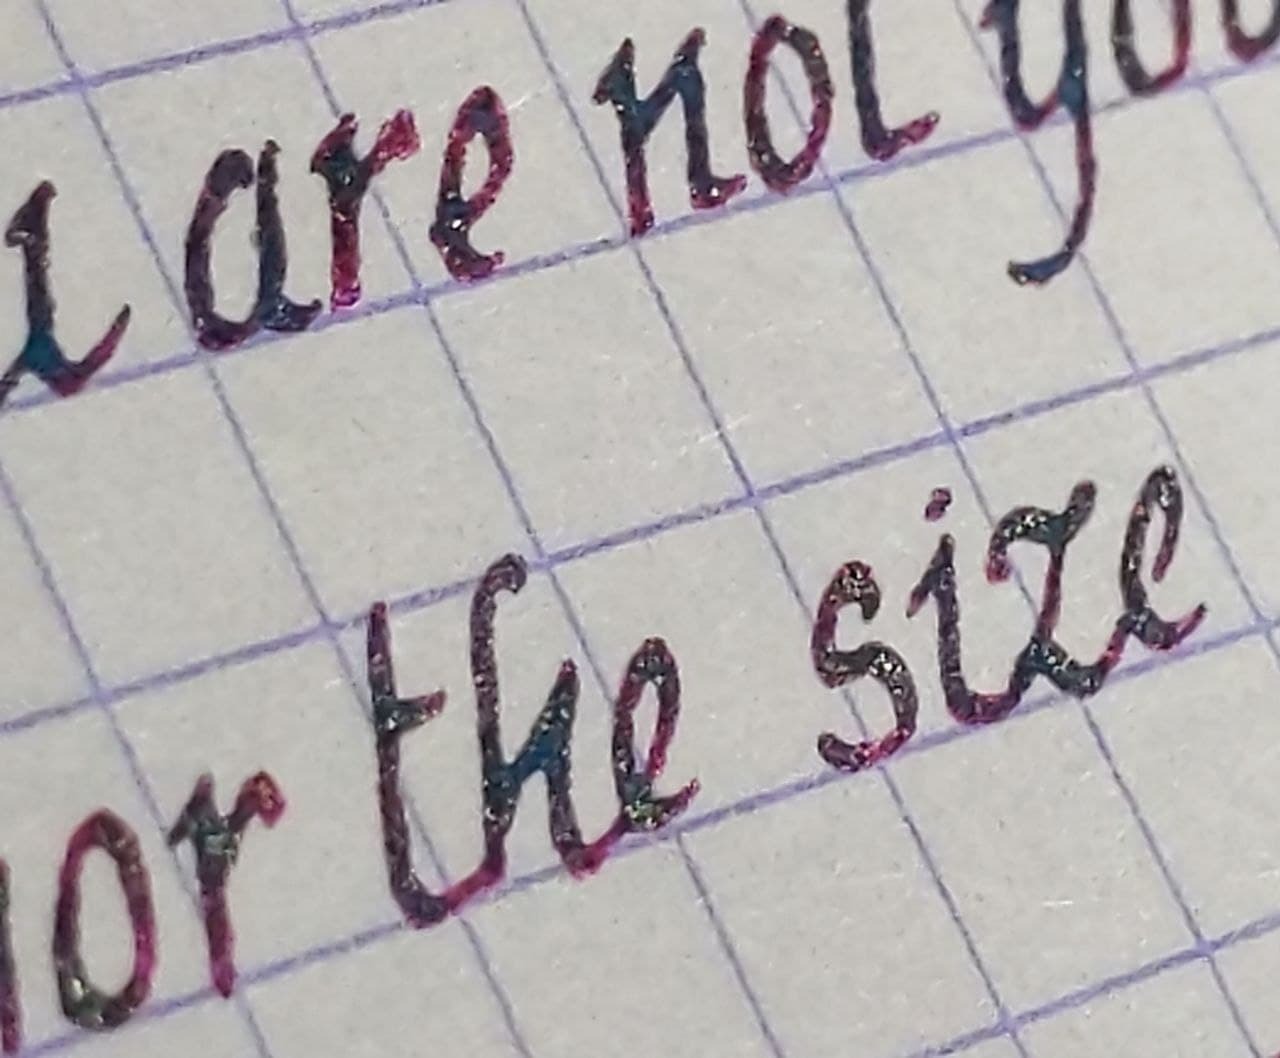 are not
nor the size